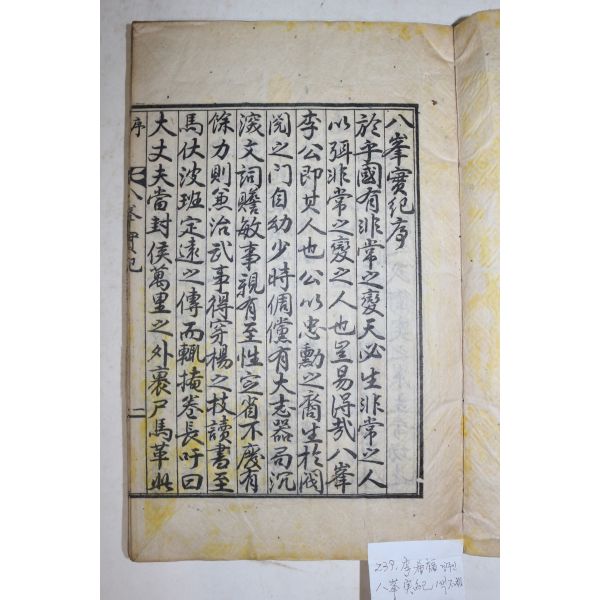 八峯實紀序
於乎國有非常之變天必生非常之人
以弭非常之變之人也豈易得哉八峯
李公即其人也公以忠勳之裔生於閥
閱之門自幼少時倜儻有大志器局沉
深文詞贍敏事親有至性定省不廢有
餘力則兼治武事得穿楊之技讀書至
馬伏波班定遠之傳而輒掩卷長吁曰
大丈夫當封侯萬里之外裹尸馬革此
序 八峯實紀 二
239. 李
八峯實紀